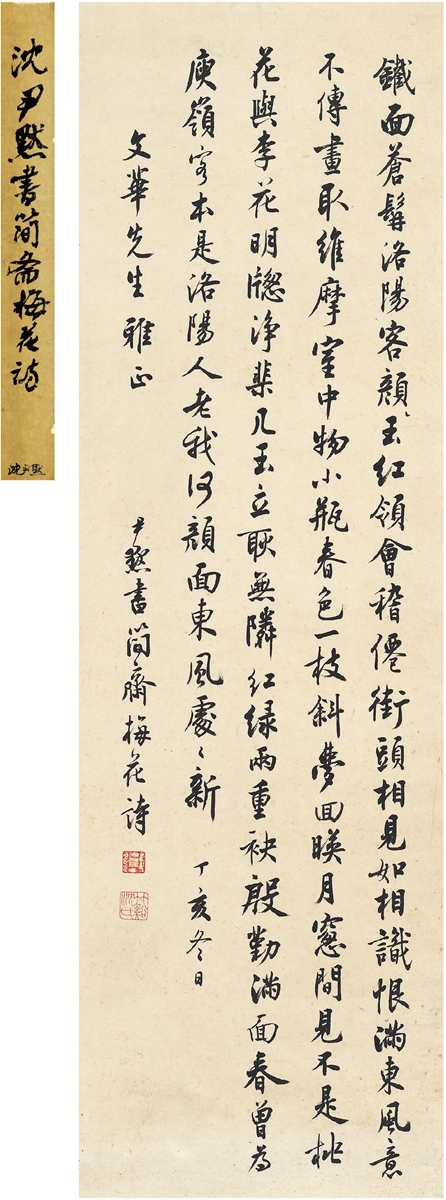 沈尹默書簡齋梅花詩
沈尹默
鐵面蒼髯洛陽客顏、玉紅領會稽僊街頭相見如相識恨滿東風意
不傳畫取維摩室中物小瓶春色一枝斜夢回暎月窓間見不是桃
花與李花明牕淨棐几玉立耿無隣紅緑兩重袂殷勤滿面春曾為
庾嶺客本是洛陽人老我何顏面東風處〻新 丁亥冬日
文華先生雅正
尹默書簡齋梅花詩